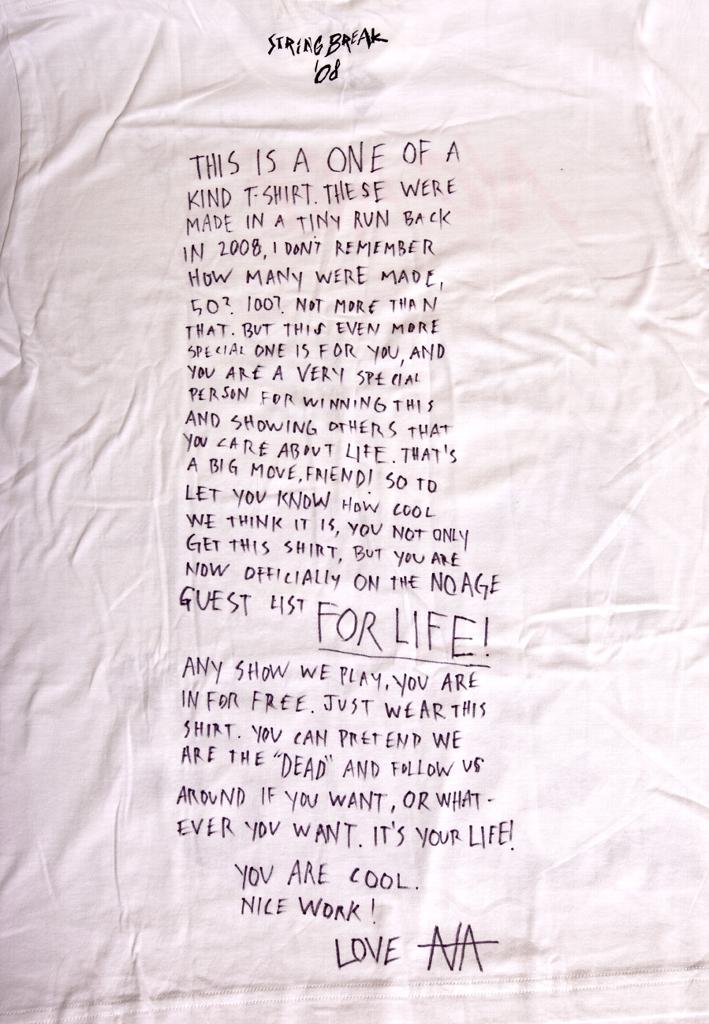 STRING BREAK
'08
THIS IS A ONE OF A
KIND T-SHIRT. THESE WERE
MADE IN A TINY RUN BACK
IN 2008, I DON'T REMEMBER
HOW MANY WERE MADE,
50? 100? NOT MORE THAN
THAT. BUT THIS EVEN MORE
SPECIAL ONE IS FOR YOU, AND
YOU ARE A VERY SPECIAL
PERSON FOR WINNING THIS
AND SHOWING OTHERS THAT
YOU CARE ABOUT LIFE. THAT'S
A BIG MOVE, FRIEND! SO TO
LET YOU KNOW HOW COOL
WE THINK IT IS, YOU NOT ONLY
GET THIS SHIRT, BUT YOU ARE
NOW OFFICIALLY ON THE NO AGE
GUEST LIST FOR LIFE!
ANY SHOW WE PLAY, YOU ARE
IN FOR FREE. JUST WEAR THIS
SHIRT. YOU CAN PRETEND WE
ARE THE "DEAD" AND FOLLOW US
AROUND IF YOU WANT, OR WHAT-
EVER YOU WANT. IT'S YOUR LIFE!
YOU ARE COOL.
NICE WORK!
LOVE NA